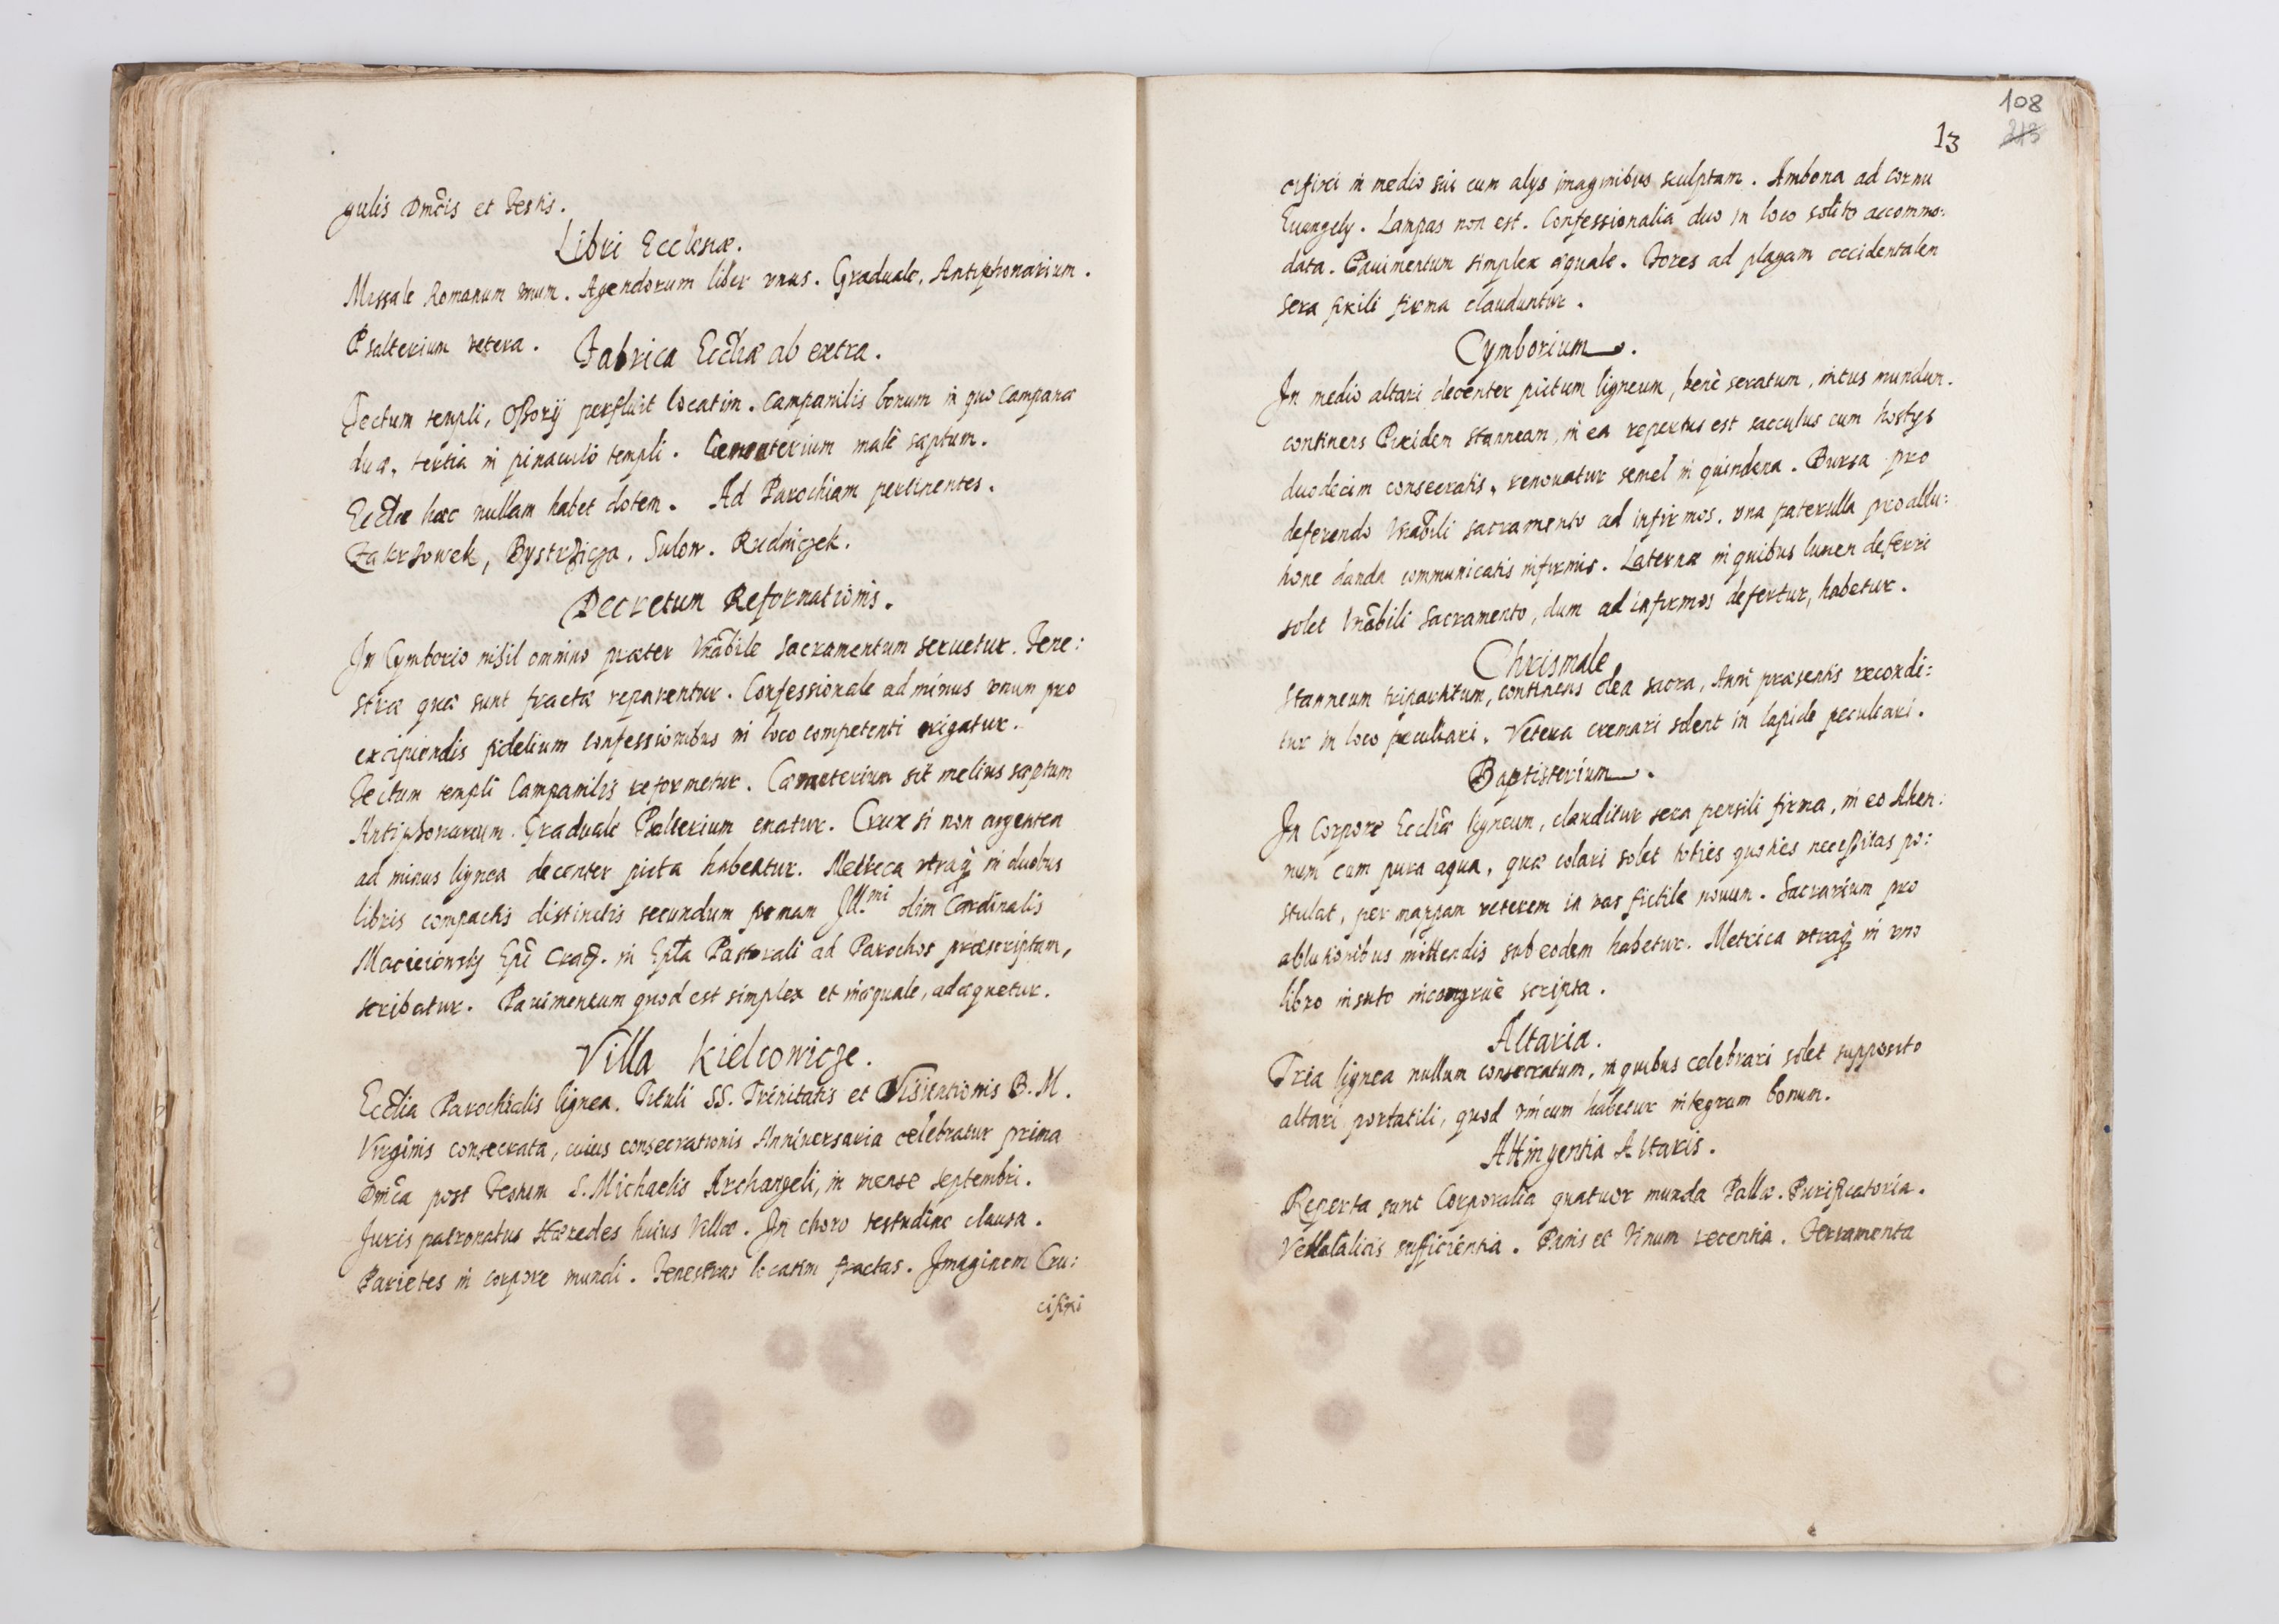 gulis Dm̃cis et Festis.
Libri Ecclesiæ.
Missale Romanum unum. Agendorum liber vnus. Graduale, Antiphonarium.
Psalterium vetera.
Fabrica Eccliæ ab extra.
Tectum templi, Ossorij perfluit locatim. Campanilis bonum in quo Campanæ
duæ, tertia in pinaculo templi. Cæmeterium malè sæptum.
Ecclia hæc nullam habet dotem. Ad Parochiam pertinentes.
Zakrzowek, Bystrzicza. Sulow. Rudniczek.
Decretum Reformationis.
In Cymborio nihil omnino præter Vnãbile Sacramentum seruetur. Fene:
stræ quæ sunt fractæ reparentur. Confessionale ad minus vnum pro
excipiendis fidelium confessionibus in loco competenti erigatur.
Tectum templi Campanilis reformetur. Cæmeterium sit melius sæptum
Antiphonarium. Graduale Psalterium ematur. Crux si non argentea
ad minus lignea decenter picta habeatur. Metrica vtraq; in duobus
libris compactis distinctis secundum formam Ill.mi olim Cardinalis
Macieiowsky Epĩ Crac. in Epla Pastorali ad Parochos præscriptam,
scribatur. Pauimentum quod est simplex et inæquale, adæquetur.
Villa Kielcowicze.
Ecclia Parochialis lignea. Tituli SS. Trinitatis et Visitationis B. M.
Virginis consecrata, cuius consecrationis Anniuersaria celebratur prima
Dm̃ca post Festum S. Michaelis Archangeli, in mense septembri.
Juris patronatus Hæredes huius Villæ. In choro testudine clausa.
Parietes in corpore mundi. Fenestras locatim fractas. Imaginem Cru:
cifixi
108
213
13
cifixi in medio sui cum alys imaginibus sculptam. Ambona ad cornu
Euangely. Lampas non est. Confessionalia duo in loco solito accommo:
data. Pauimentum simplex æquale. Fores ad plagam occidentalem
sera fixili firma clauduntur.
Cymborium.
In medio altari decenter pictum ligneum, benè seratum, intus mundum.
continens Pixidem stanneam, in ea repertus est sacculus cum hostys
duodecim consecratis, renouatur semel in quindena. Bursa pro
deferendo Vnãbili sacramento ad infirmos. vna paterulla pro ablu:
tione danda communicatis infirmis. Laternæ in quibus lumen deferri
solet Vnãbili Sacramento, dum ad infirmos defertur, habetur.
Chrismale
Stanneum tripartitum, continens olea sacra, Anni præsentis recondi:
tur in loco peculiari. Vetera cremari solent in lapide peculiari.
Baptisterium.
In Corpore Eccliæ ligneum, clauditur sera pensili firma, in eo Ahen:
num cum pura aqua, quæ colari solet toties quoties necessitas po:
stulat, per mappam veterem in vas fictile nouum. Sacrarium pro
ablutionibus mittendis sub eodem habetur. Metrica vtraq; in vno
libro insuto incongruè scripta.
Altaria.
Tria lignea nullum consecratum, in quibus celebrari solet supposito
altari portatili, quod vnicum habetur integrum bonum.
Attingentia Altaris.
Reperta sunt Corporalia quatuor munda Pallæ. Purificatoria.
sufficientia. Panis et Vinum recentia. Ferramenta